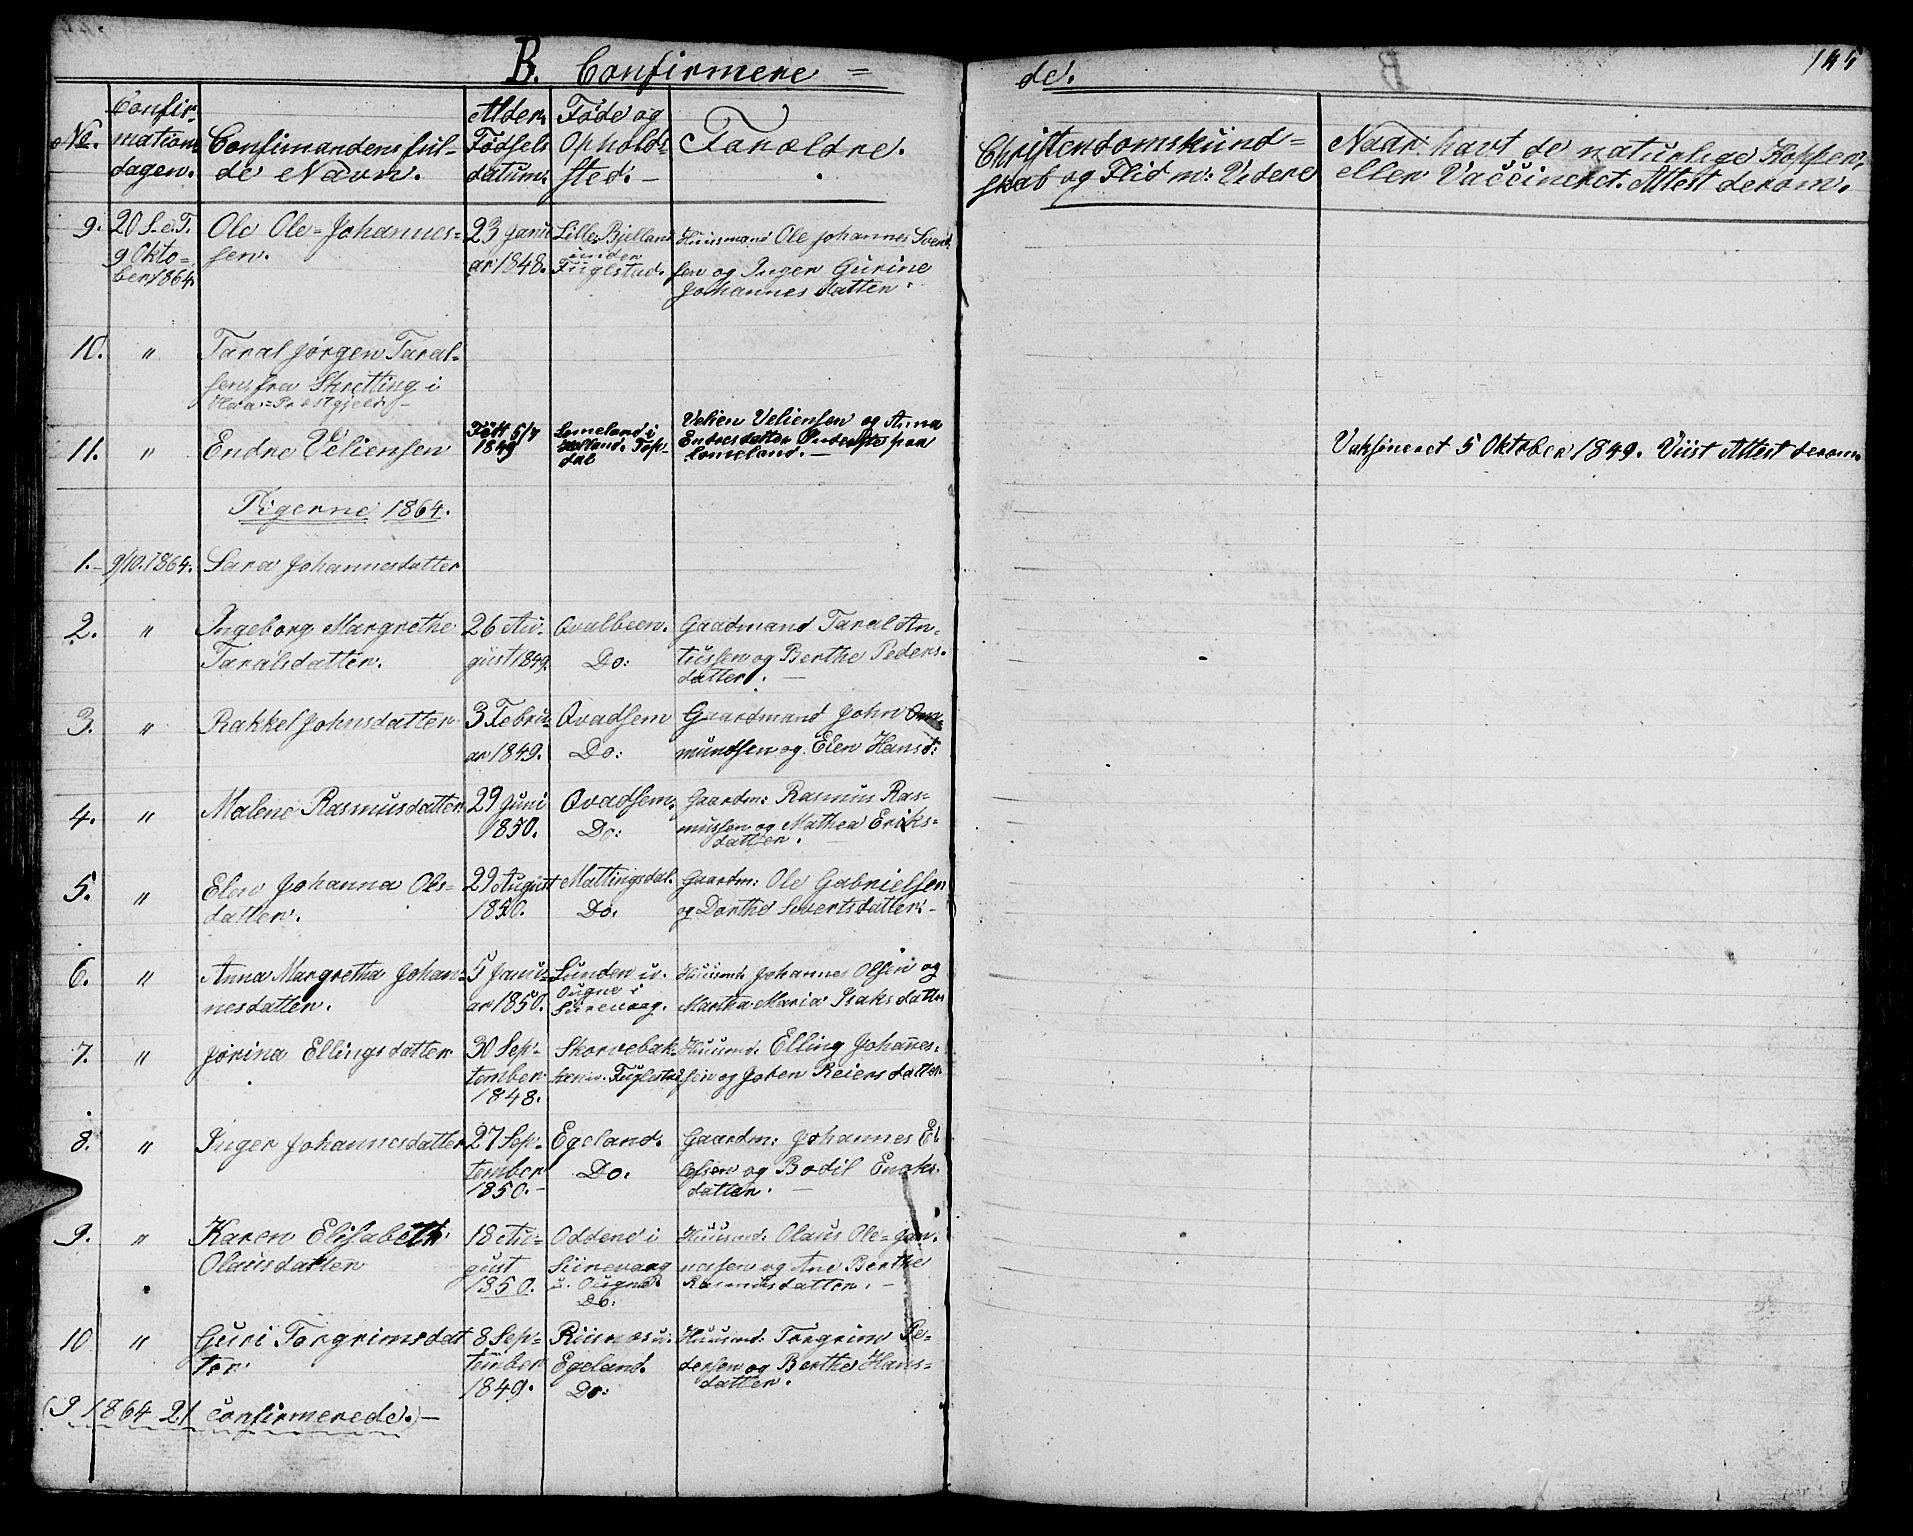 B. Confirmere =
de.
No.
Confir-
mations
dagen.
Confirmandens ful-
de Navn.
Alder.
Fødsels
datum.
Føde og
Opholds-
sted. —
Forældre.
Christendomskund=
skab og Flid m: Videre
Naar havt de naturlige Kopper,
eller Vaccineret. Attest derom.
9.
20 S. e. T.
9 Okto-
ber 1864.
Ole Ole-Johannes-
sen.
23 Janu
ar 1848.
Lille Bjelland
under
Fuglestad.
Huusmand Ole Johannes Svend
sen og Inger Gurine
Johannesdatter.
10.
"
Taral Jørgen Taral-
sen, fra Skretting i
Præstgjeld —
11.
"
Endre Veliensen
Født 5/7
1849
Lomeland i
Helland. Top-
dal
Velien Veliensen og Anna
Endresdatter fra
Lomeland. —
Vaksineret 5 Oktober 1849. Viist Attest derom.
Pigerne 1864.
1. —
9/10. 1864.
Sara Johannesdatter
2.
"
Ingeborg Margrethe
Taralsdatter.
26 Au-
gust 1849.
Qvalbeen.
Do:
Gaadmand Taral An-
tussen og Berthe Peders-
datter. —
3.
"
Rakkel Johnsdatter
3 Febru-
ar 1849.
Qvadsem
Do:
Gaardmand John Om-
mundsen og Elen Hansd:
4.
"
Malene Rasmusdatter
29 Juni
1850.
Qvadsem.
Do:
Gaardm: Rasmus Ras-
mussen og Mathea Eriks-
datter.
5.
"
Elen Johanna Ols-
datter.
29 August
1850.
Mattingsdal.
Do.
Gaardm: Ole Gabrielsen
og Dorthe Sivertsdatter. —
6.
"
Anna Margretha Johan-
nesdatter.
5 Janu-
ar 1850.
Sunden u.
Ougne i
Sirevaag.
Huusmd. Johannes Olsen og
Martha Maria Isaksdatter
7.
"
Jørina Ellingsdatter
30 Sep-
tember
1848.
Skorvebak-
ken u. Fuglestad
Huusmd. Elling Johanes-
sen og Joren Reiersdatter
8.
"
Inger Johannesdatter
27 Sep-
tember
1850. —
Egeland.
Do:
Gaardm: Johannes El
lefsen og Bodil Enoks
datter. —
9.
"
Karen Elisabeth
Olausdatter
18 Au-
gust
1850.
Oddene i
Siirevaag
u. Ougne
Do:
Huusmd: Olaus Ole-Jan.
nessen og Ane Berthe
Rasmusdatter. —
10
"
Guri Torgrimsdat
ter.
8 Sep-
tember
1849.
Riisnes u.
Egeland.
Do:
Huusmd: Torgrim Pe-
dersen og Berthe Hans-
datter.
(I 1864 21 confirmerede.) —